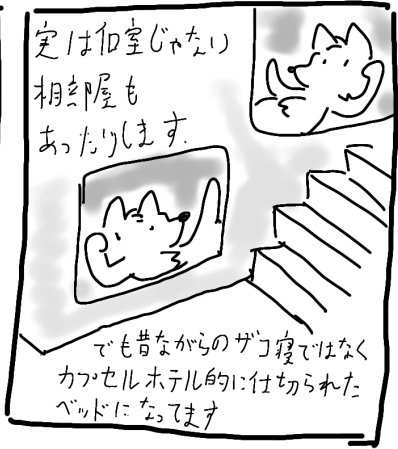 実は個室じゃない
相部屋も
あったりします.
でも昔ながらのザコ寝ではなく
カプセルホテル的に仕切られた
ベッドになってます